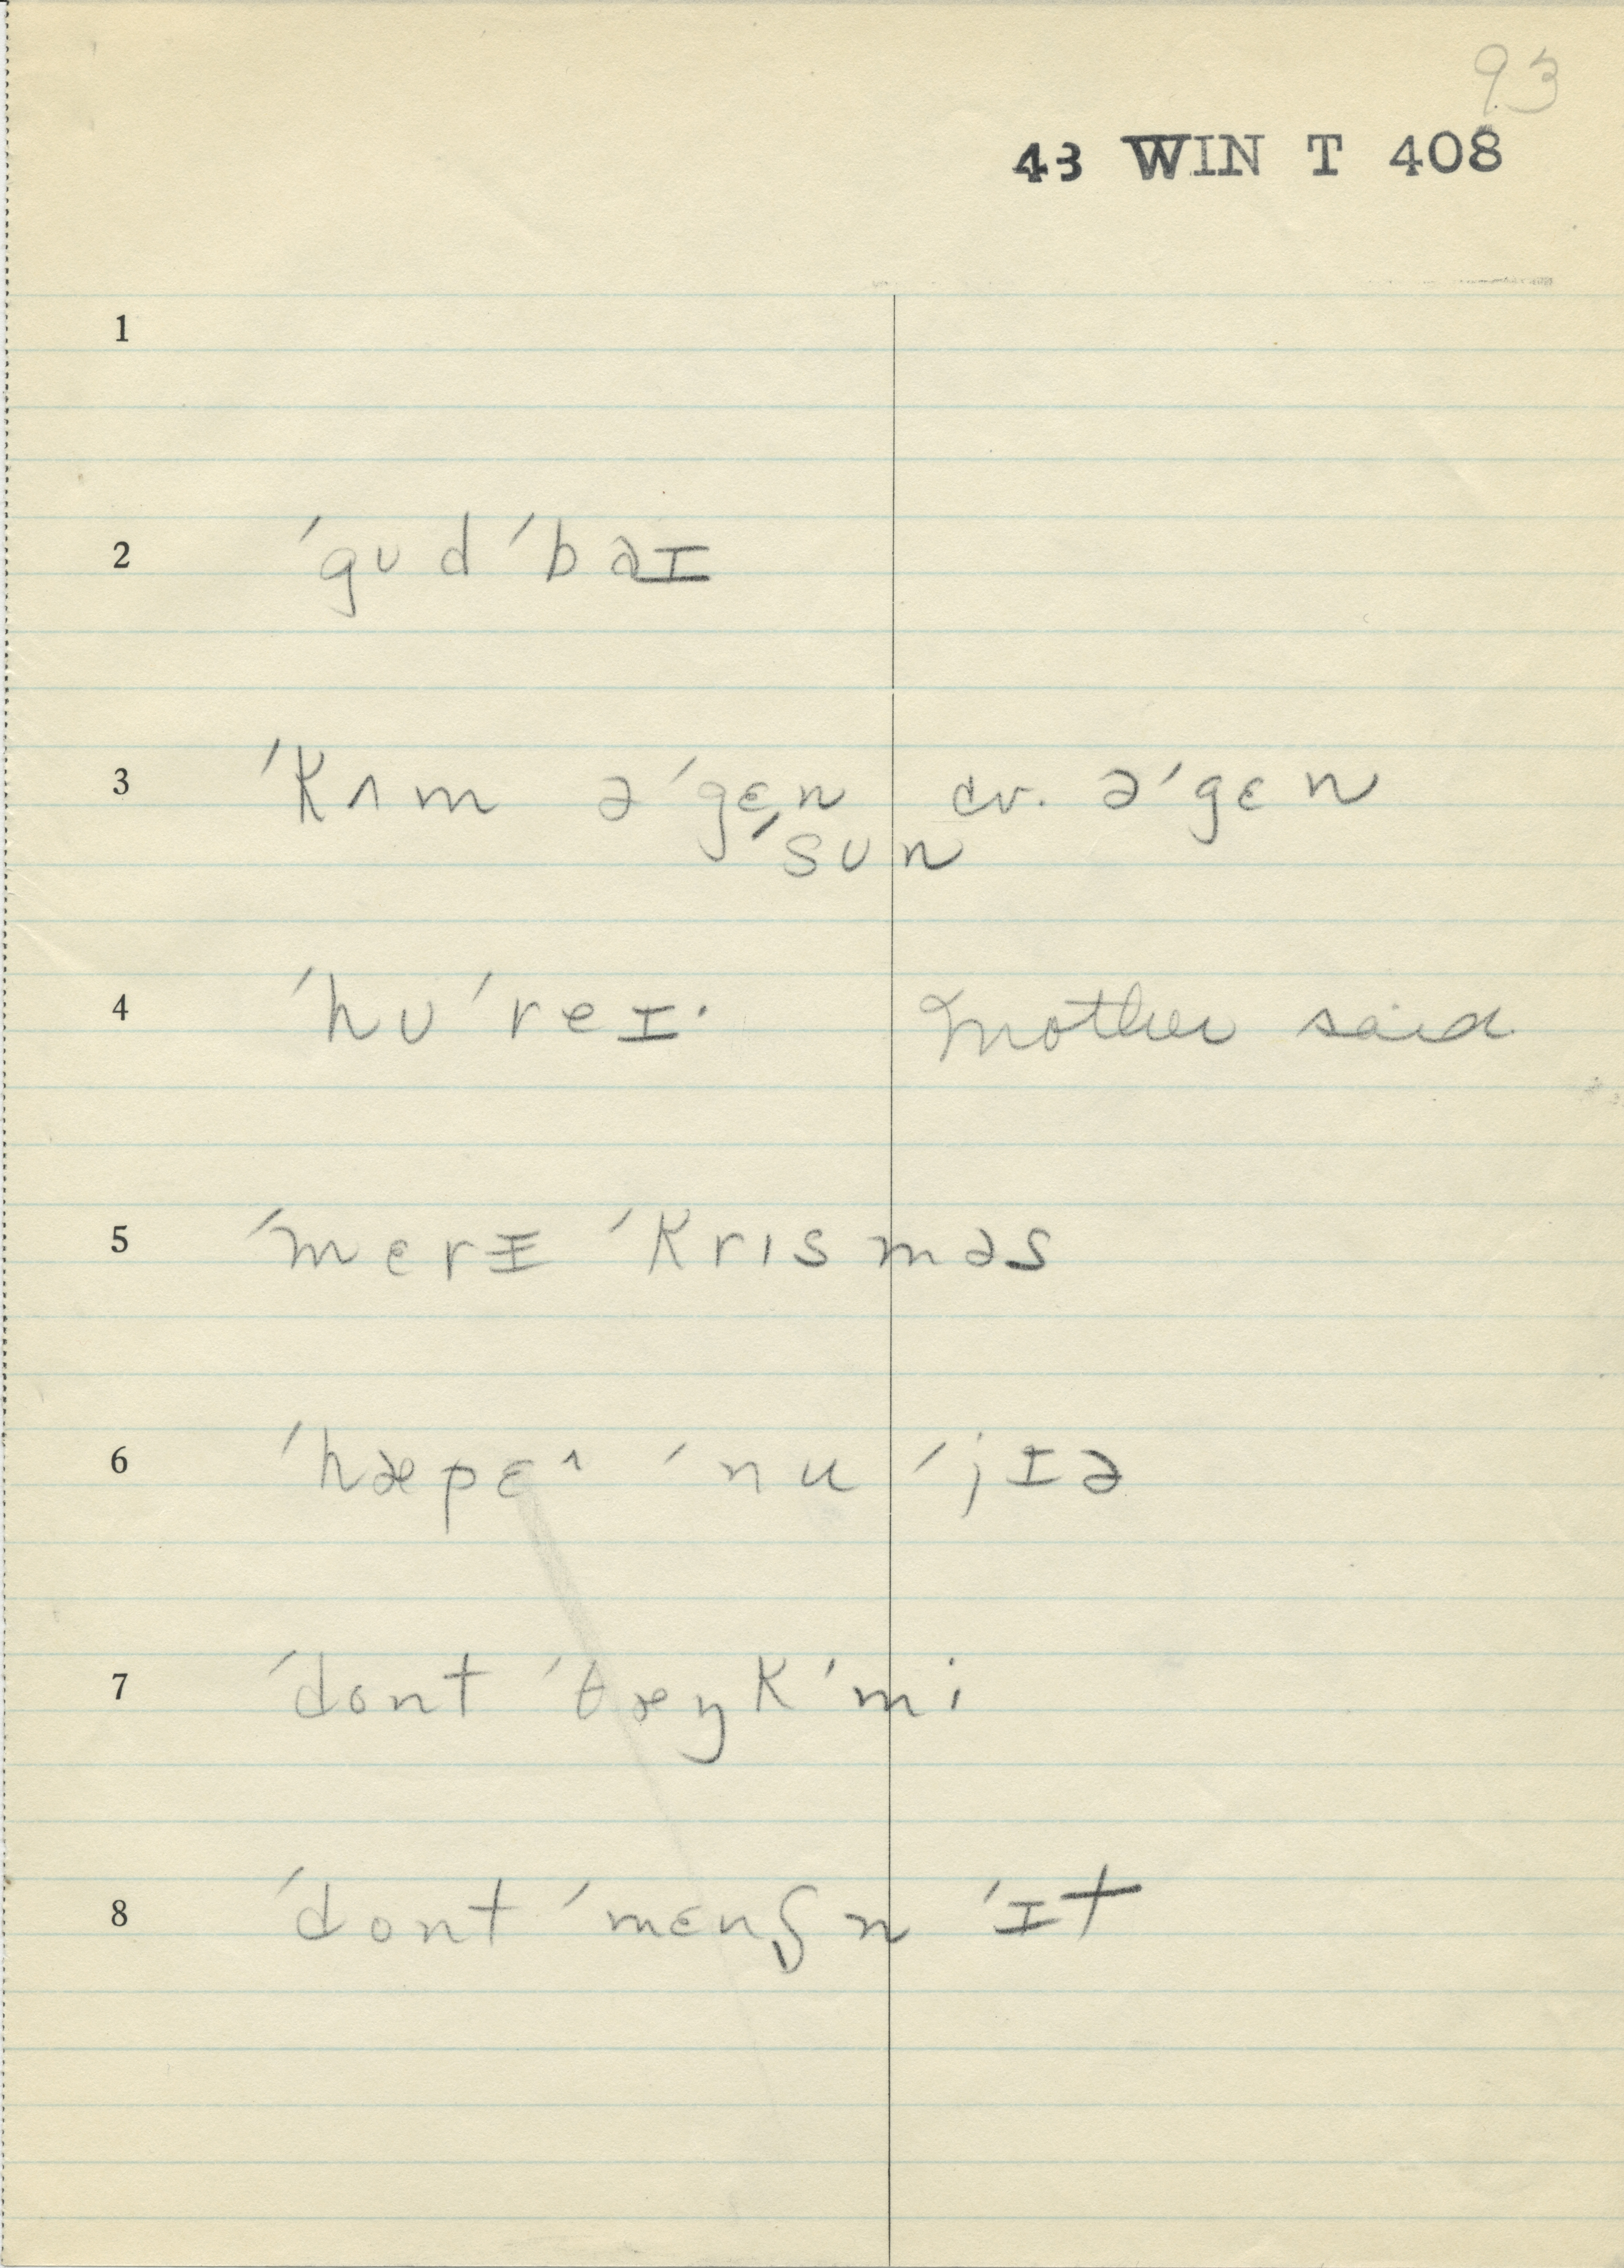 93
43 WIN T 408
1
2 ˈgʊdˈbaɪ
3 ˈkʌm əˈgɛn cv. əˈgɛn
ˈsʊn
4 ˈhʊˈreɪ· Mother said
5 ˈmɛrɪ ˈkrɪsməs
6 ˈhæpɛ^ ˈnu ˈjɪə
7 ˈdont ˈθæŋk ˈmi
8 ˈdont ˈmɛnʃn ˈɪt